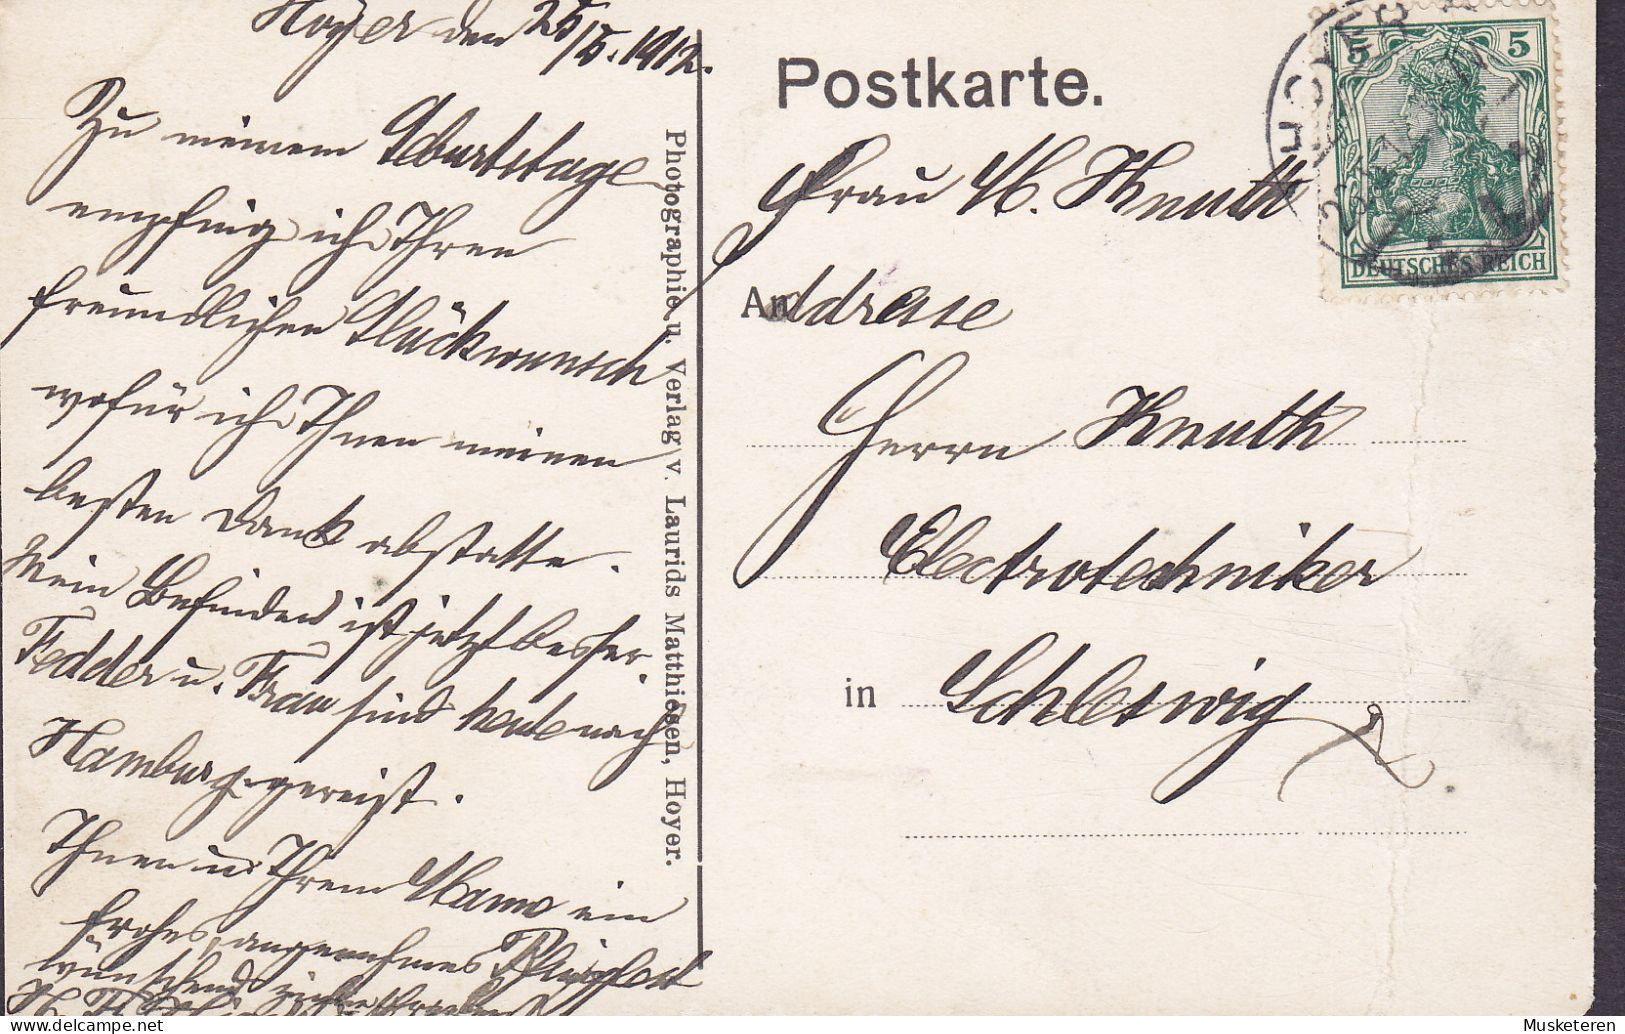 Hoyer den 25/5. 1912.
Zu meinem Geburtstage
empfing ich Ihren
freundlichen Glückwunsch
wofür ich Ihnen meinen
besten Dank abstatte.
Mein Befinden ist jetzt besser.
Fedder u. Frau sind heute nach
Hamburg gereist.
Ihnen u. Ihrem Manne ein
frohes, angenehmes Pfingstfest
wünschend
Photographie u. Verlag v. Laurids Matthiesen, Hoyer.
Postkarte.
HOYER
5 5
DEUTSCHES REICH
Frau M. Knuth
An
Addresse
Herrn Knuth
Electrotechniker
in Schleswig
Musketeren